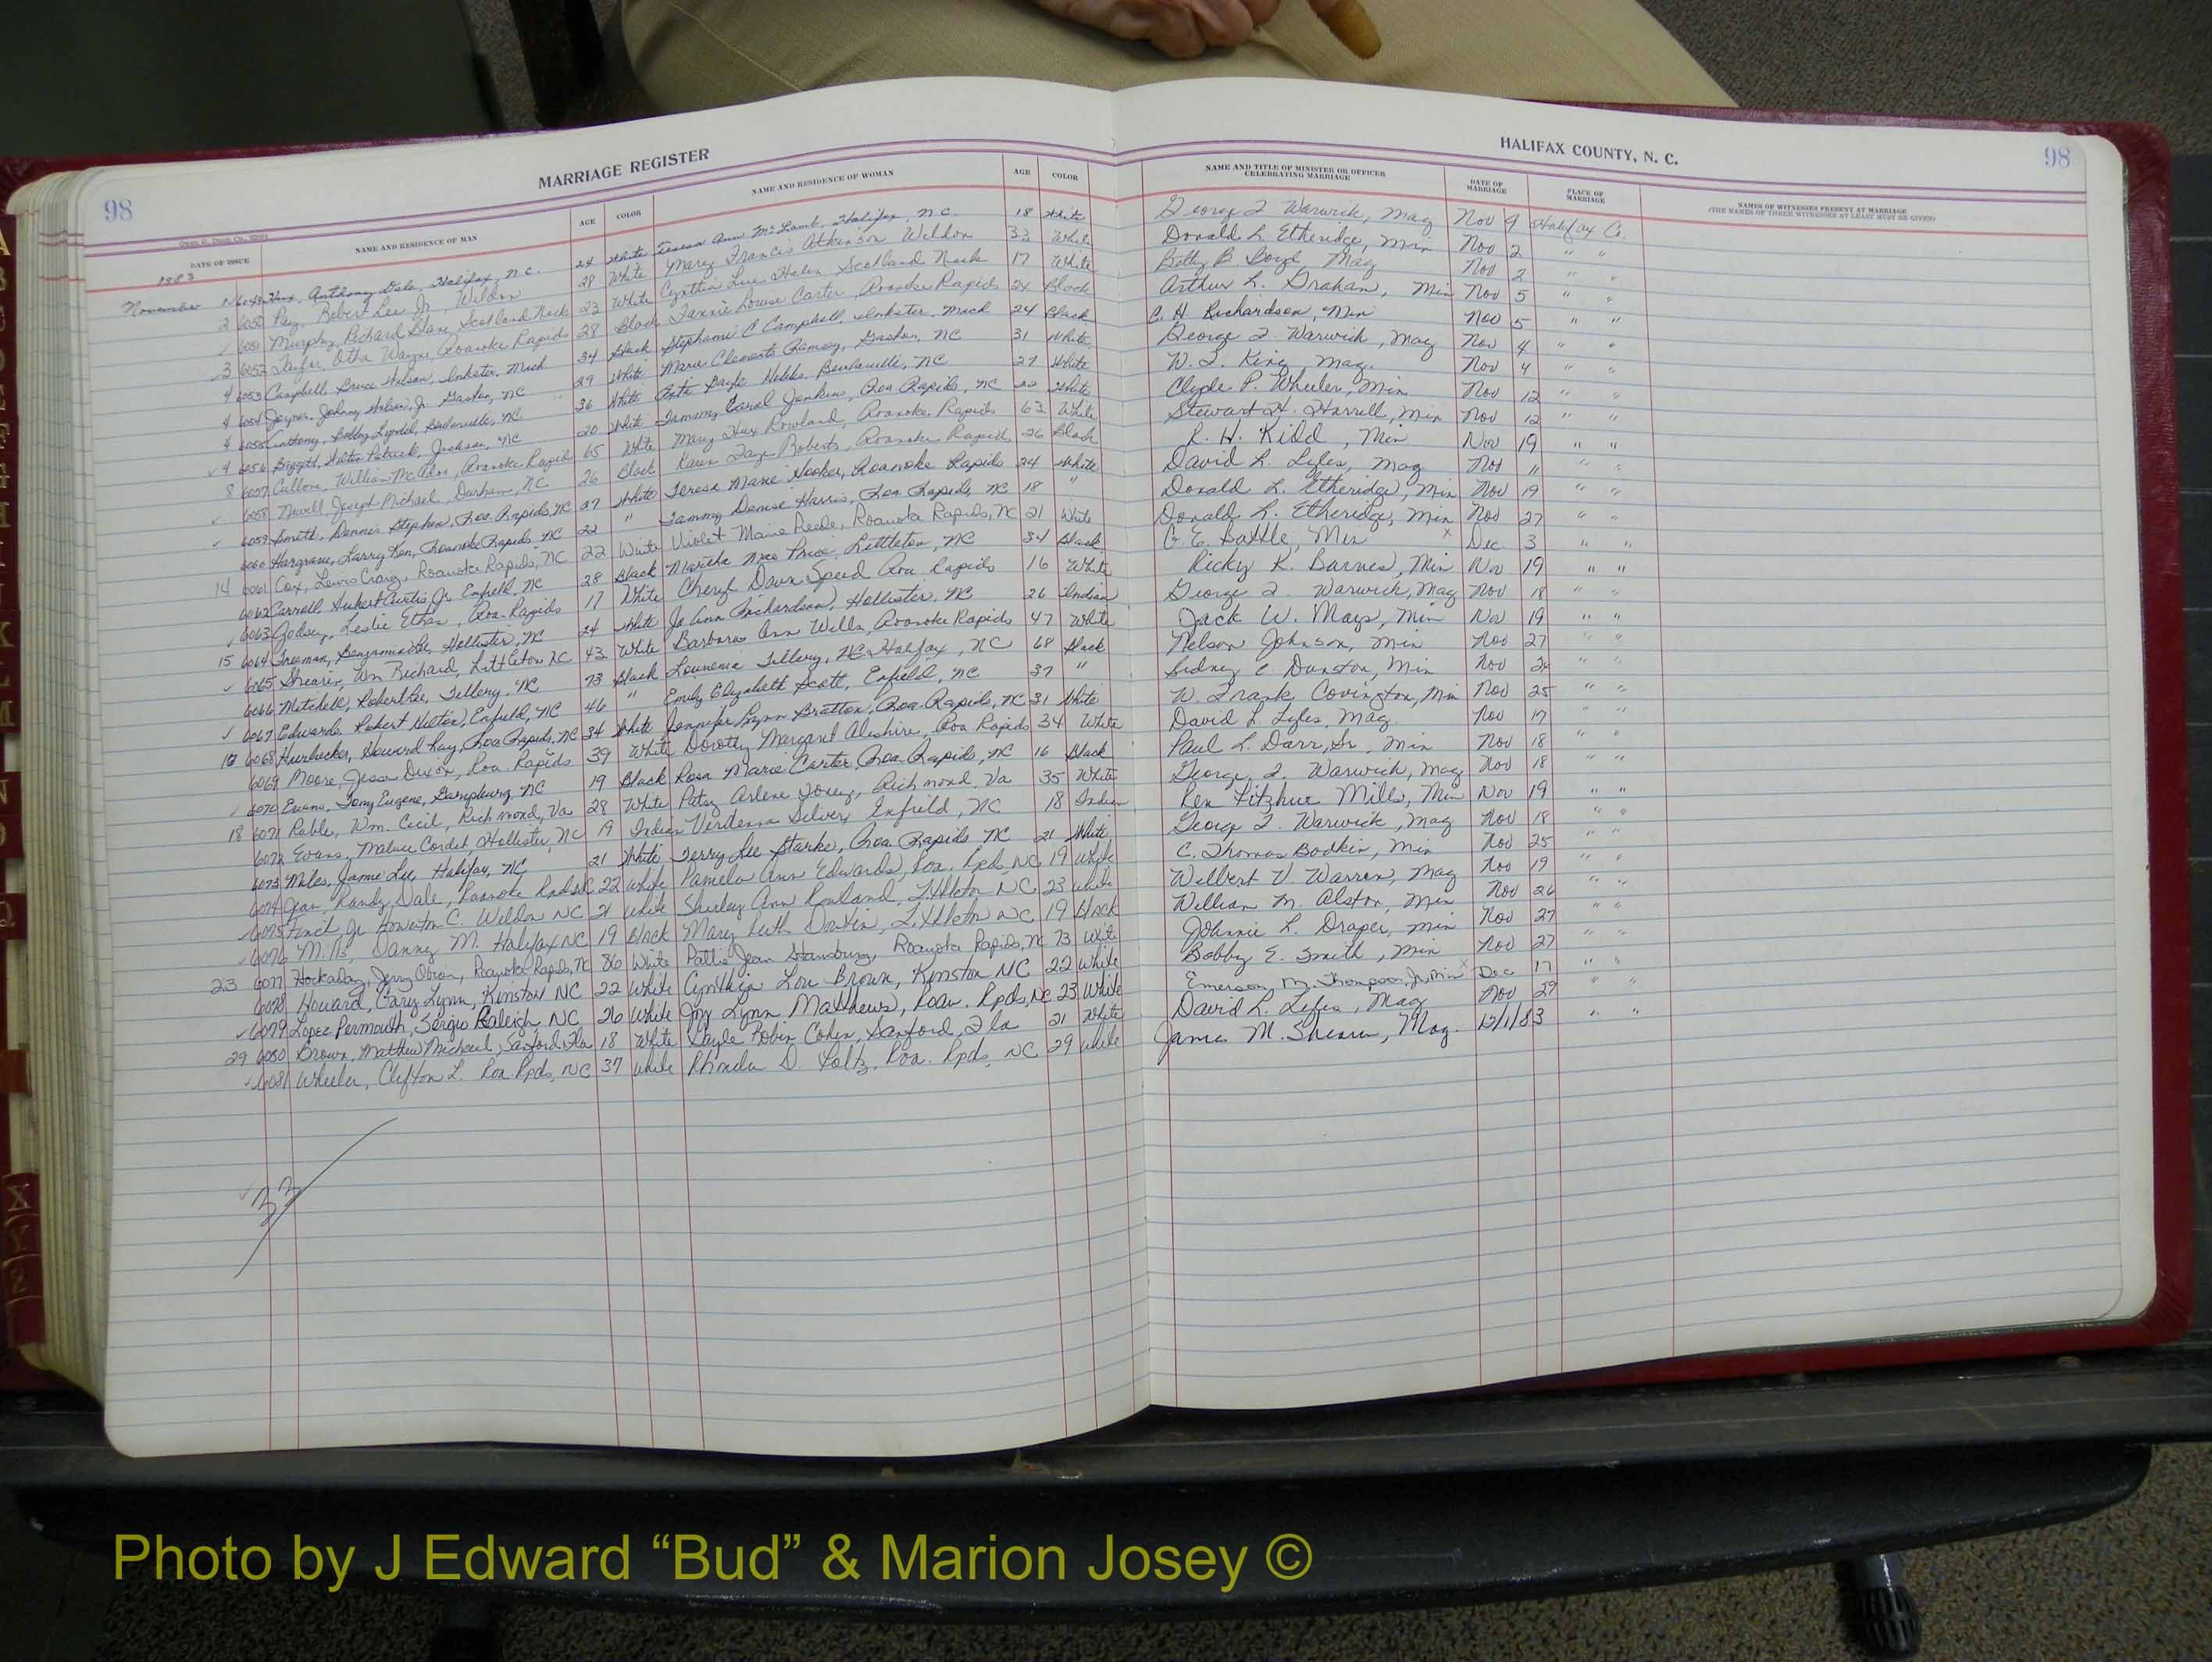 98 MARRIAGE REGISTER
HALIFAX COUNTY, N. C. 98
DATE OF ISSUE NAME AND RESIDENCE OF MAN AGE COLOR NAME AND RESIDENCE OF WOMAN AGE COLOR NAME AND TITLE OF MINISTER OR OFFICER CELEBRATING MARRIAGE DATE OF MARRIAGE PLACE OF MARRIAGE NAMES OF WITNESSES PRESENT AT MARRIAGE (THE NAMES OF THREE WITNESSES AT LEAST MUST BE GIVEN)
1983
November Hux, Anthony Dale, Halifax, N.C. 24 White Teresa Ann McLamb, Halifax, N.C. 18 White George Warwick, Mag Nov 9 Halifax Co.
2 6050 Robert Lee Jr, Weldon 28 White Mary Francis Atkinson Weldon 33 White Donald L. Etheridge, Min Nov 2 " "
6051 Murphy, Richard Scotland Neck 23 White Cynthia Lee Scotland Neck 17 White Betty B. Mag Nov 2 " "
3 6052 Otha Wayne, Roanoke Rapids 28 Black Fannie Louise Carter, Roanoke Rapids 24 Black Arthur L. Graham, Min Nov 5 " "
4 6053 Campbell, Bruce Inkster, Mich 34 Black Stephanie C Campbell, Inkster, Mich 24 Black C. H. Richardson, Min Nov 5 " "
4 6054 Joyner, Johnny Jr Gaston, NC 29 White Marie Clements Ramsey, Gaston, NC 31 White George Warwick, Mag Nov 4 " "
4 6055 Bobby NC 36 White NC 27 White W. King Mag. Nov 4 " "
4 6056 Patrick, Jackson, NC 20 White Tammy Carol Jenkins, Roa Rapids, NC 22 White Clyde P. Wheeler, Min Nov 12 " "
8 6057 Cullom, William Roanoke Rapids 65 White Mary Hux Rowland, Roanoke Rapids 63 White Stewart H. Harrell, Min Nov 12 " "
6058 Joseph Michael, Durham, NC 26 Black Karen Faye Roberts, Roanoke Rapids 26 Black L. H. Kidd, Min Nov 19 " "
6059 Smith, Dennis Stephen, Roa. Rapids, NC 37 White Teresa Marie Hooker, Roanoke Rapids 24 White David L. Lyles, Mag Nov 11 " "
6060 Hargrave, Larry Roanoke Rapids NC 22 " Tammy Denise Harris, Roa Rapids, NC 18 " Donald L. Etheridge, Min Nov 19 " "
14 6061 Cox, Lewis Craig, Roanoke Rapids, NC 22 White Violet Marie Reede, Roanoke Rapids, NC 21 White Donald L. Etheridge, Min Nov 27 " "
6062 Carroll, Hubert Curtis Jr Enfield, NC 28 Black Martha Mae Price, Littleton, NC 34 Black G. E. Battle, Min Dec. 3 " "
6063 Godsey, Leslie Ethan, Roa. Rapids 17 White Cheryl Dawn Speed Roa Rapids 16 White Ricky K. Barnes, Min Nov 19 " "
15 6064 Freeman, Benjamin Hollister, NC 24 White Jo Ann Richardson, Hollister, NC 26 Indian George Warwick, Mag Nov 18 " "
6065 Shearin, Wm Richard, Littleton NC 43 White Barbara Ann Wells, Roanoke Rapids 47 White Jack W. Mays, Min Nov 19 " "
6066 Mitchell, Robert Lee, Tillery, NC 73 Black Lounenia Tillery, NC Halifax, NC 68 Black Nelson Johnson, Min Nov 27 " "
6067 Edwards, Robert Hilton, Enfield, NC 46 " Emily Elizabeth Scott, Enfield, NC 37 " Sidney C Dunston, Min Nov 24 " "
6068 Howard Ray, Roa Rapids, NC 34 White Jennifer Lynn Bratton, Roa. Rapids, NC 31 White W. Frank Covington, Min Nov 25 " "
6069 Moore, Jesse Dixon, Roa. Rapids 39 White Dorothy Margaret Aleshire, Roa Rapids 34 White David L. Lyles, Mag. Nov 17 " "
6070 Evans, Tony Eugene, Garysburg, NC 19 Black Rosa Marie Carter, Roa. Rapids, NC 16 Black Paul L. Darr, Sr. Min Nov 18 " "
18 6071 Rable, Wm. Cecil, Richmond, Va 28 White Patsy Arlene Josey, Richmond, Va 35 White George Warwick, Mag Nov 18 " "
6072 Evans, Hollister, NC 19 Indian Verdenna Silver, Enfield, NC 18 Indian Rex Fitzhue Mills, Min Nov 19 " "
6073 Miles, Jamie Lee, Halifax, NC 21 White Terry Lee Starke, Roa. Rapids, NC 21 White George Warwick, Mag Nov 18 " "
6074 Randy Dale, Roanoke Rapids 22 White Pamela Ann Edwards, Roa. Rpds, NC 19 White C. Thomas Bodkin, Min Nov 25 " "
6075 Finch, Jr Houston C. Weldon NC 21 White Shirley Ann Rowland, Littleton NC 23 White Wilbert V. Warren, Mag Nov 19 " "
6076 Mills, Danny M. Halifax NC 19 Black Mary Ruth Littleton NC 19 Black William M. Alston, Min Nov 26 " "
23 6077 Hockaday, Jerry Roanoke Rapids, NC 86 White Pattie Jean Stansbury, Roanoke Rapids, NC 73 White Johnnie L. Draper, Min Nov 27 " "
6078 Howard, Cary Lynn, Kinston NC 22 White Cynthia Lou Brown, Kinston NC 22 White Bobby E. Smith, Min Nov 27 " "
6079 Lopez Permouth, Sergio Raleigh, NC 26 White Joy Lynn Matthews, Roan. Rpds, NC 23 White Emerson M. Thompson, Jr, Min Dec 17 " "
29 6080 Brown, Matthew Michael, Sanford Fla 18 White Gayle Robin Cohen, Sanford, Fla 21 White David L. Lyles, Mag Nov 29 " "
6081 Wheeler, Clifton L. Roa. Rpds, NC 37 White Rhonda D. Roa. Rpds, NC 29 White James M. Shearin, Mag. 12/1/83 " "
33
Photo by J Edward “Bud” & Marion Josey ©